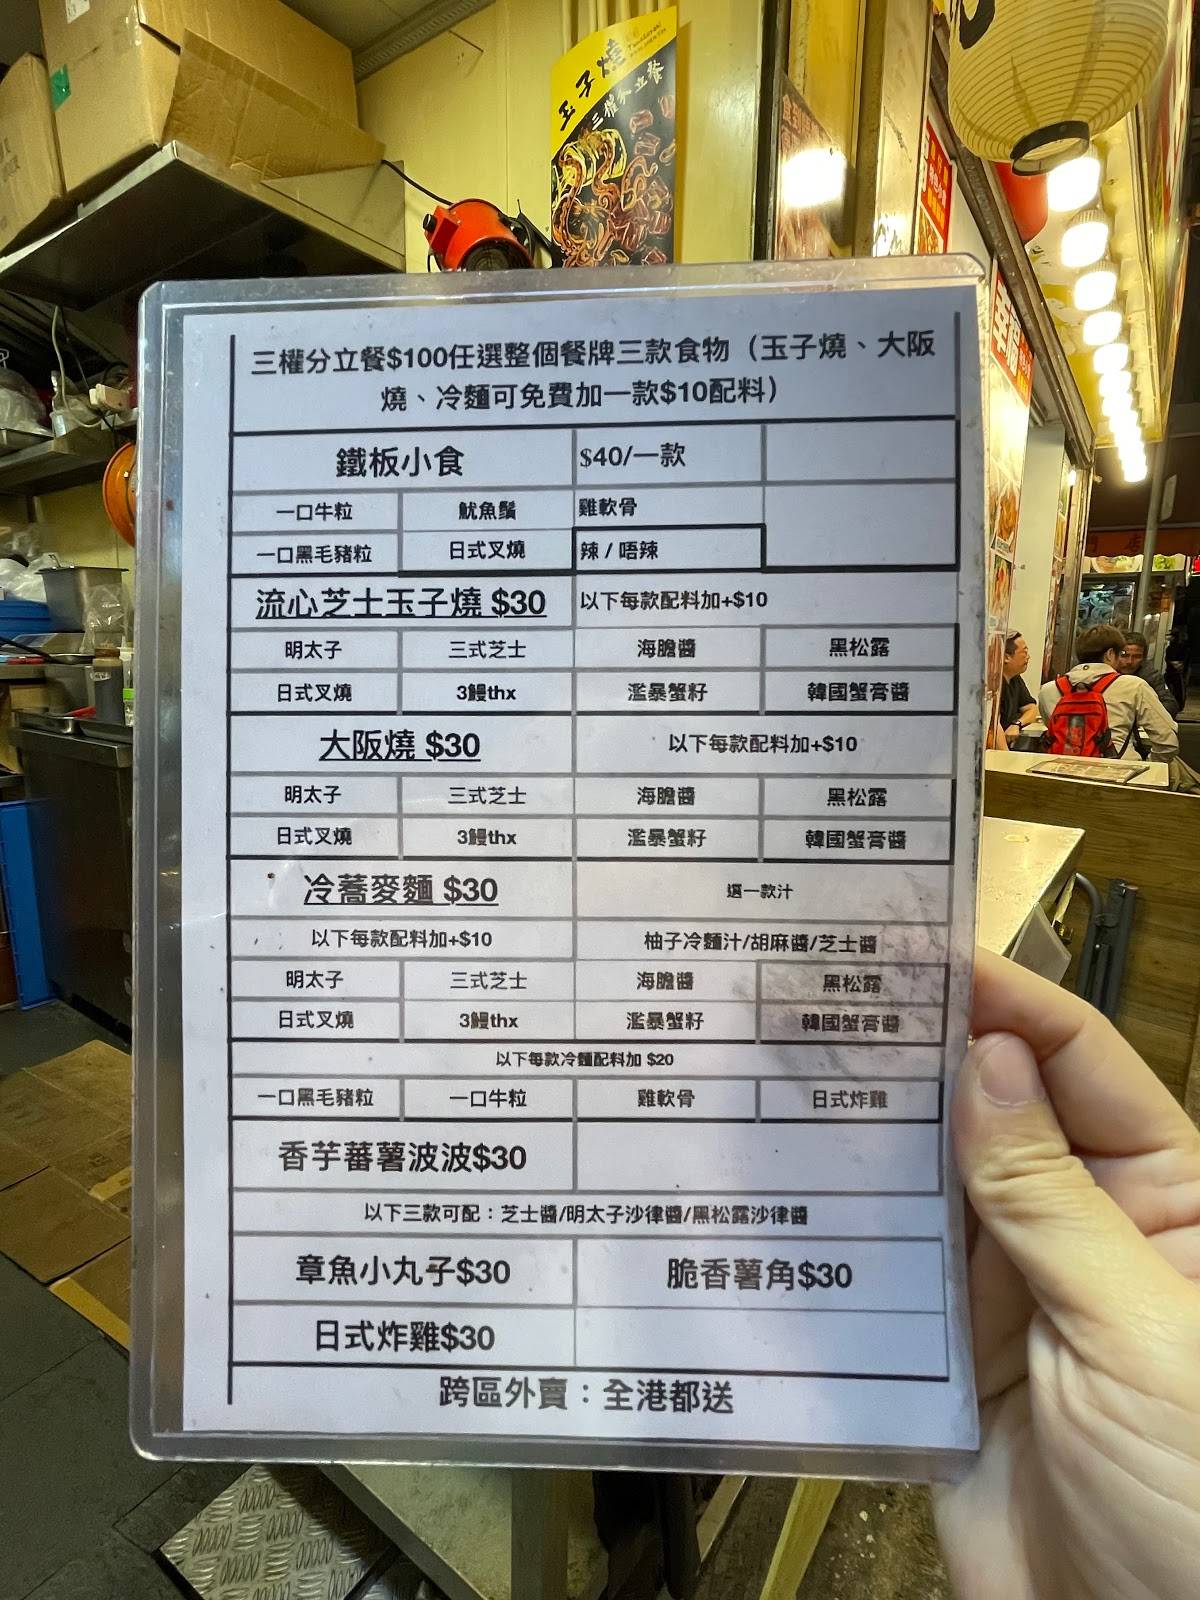 玉子燒
Tamakoyaki
三權分立餐
三權分立餐$100任選整個餐牌三款食物（玉子燒、大阪
燒、冷麵可免費加一款$10配料）
鐵板小食 $40/一款
一口牛粒 魷魚鬚 雞軟骨
一口黑毛豬粒 日式叉燒 辣 / 唔辣
流心芝士玉子燒 $30 以下每款配料加+$10
明太子 三式芝士 海膽醬 黑松露
日式叉燒 3鰻thx 濫暴蟹籽 韓國蟹膏醬
大阪燒 $30 以下每款配料加+$10
明太子 三式芝士 海膽醬 黑松露
日式叉燒 3鰻thx 濫暴蟹籽 韓國蟹膏醬
冷蕎麥麵 $30 選一款汁
以下每款配料加+$10 柚子冷麵汁/胡麻醬/芝士醬
明太子 三式芝士 海膽醬 黑松露
日式叉燒 3鰻thx 濫暴蟹籽 韓國蟹膏醬
以下每款冷麵配料加 $20
一口黑毛豬粒 一口牛粒 雞軟骨 日式炸雞
香芋蕃薯波波$30
以下三款可配：芝士醬/明太子沙律醬/黑松露沙律醬
章魚小丸子$30 脆香薯角$30
日式炸雞$30
跨區外賣：全港都送